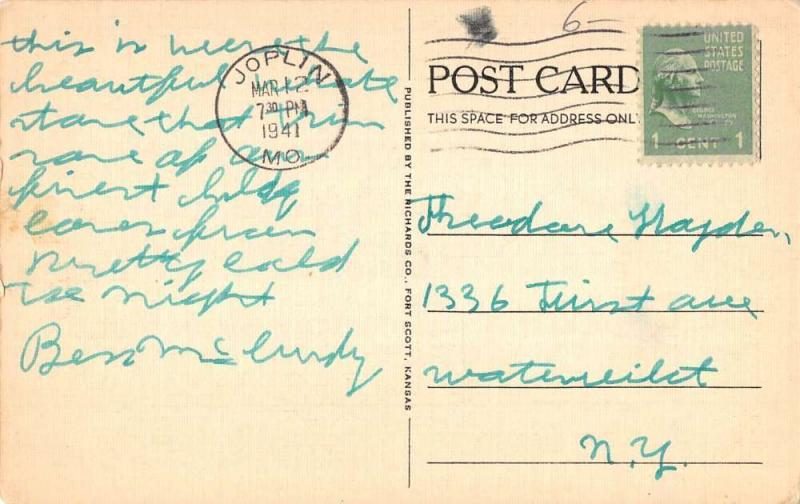 this is were the
beautiful
stone that
some of our
finest bldg
comes from
Pretty cold
to night
Ben McCurdy
JOPLIN
MAR 12
7 30 PM
1941
MO.
PUBLISHED BY THE RICHARDS CO., FORT SCOTT, KANSAS
6-
POST CARD
THIS SPACE FOR ADDRESS ONLY
UNITED
STATES
POSTAGE
GEORGE
WASHINGTON
1 CENT 1
Theodore Hayden,
1336 First ave
Watervilet
N.Y.